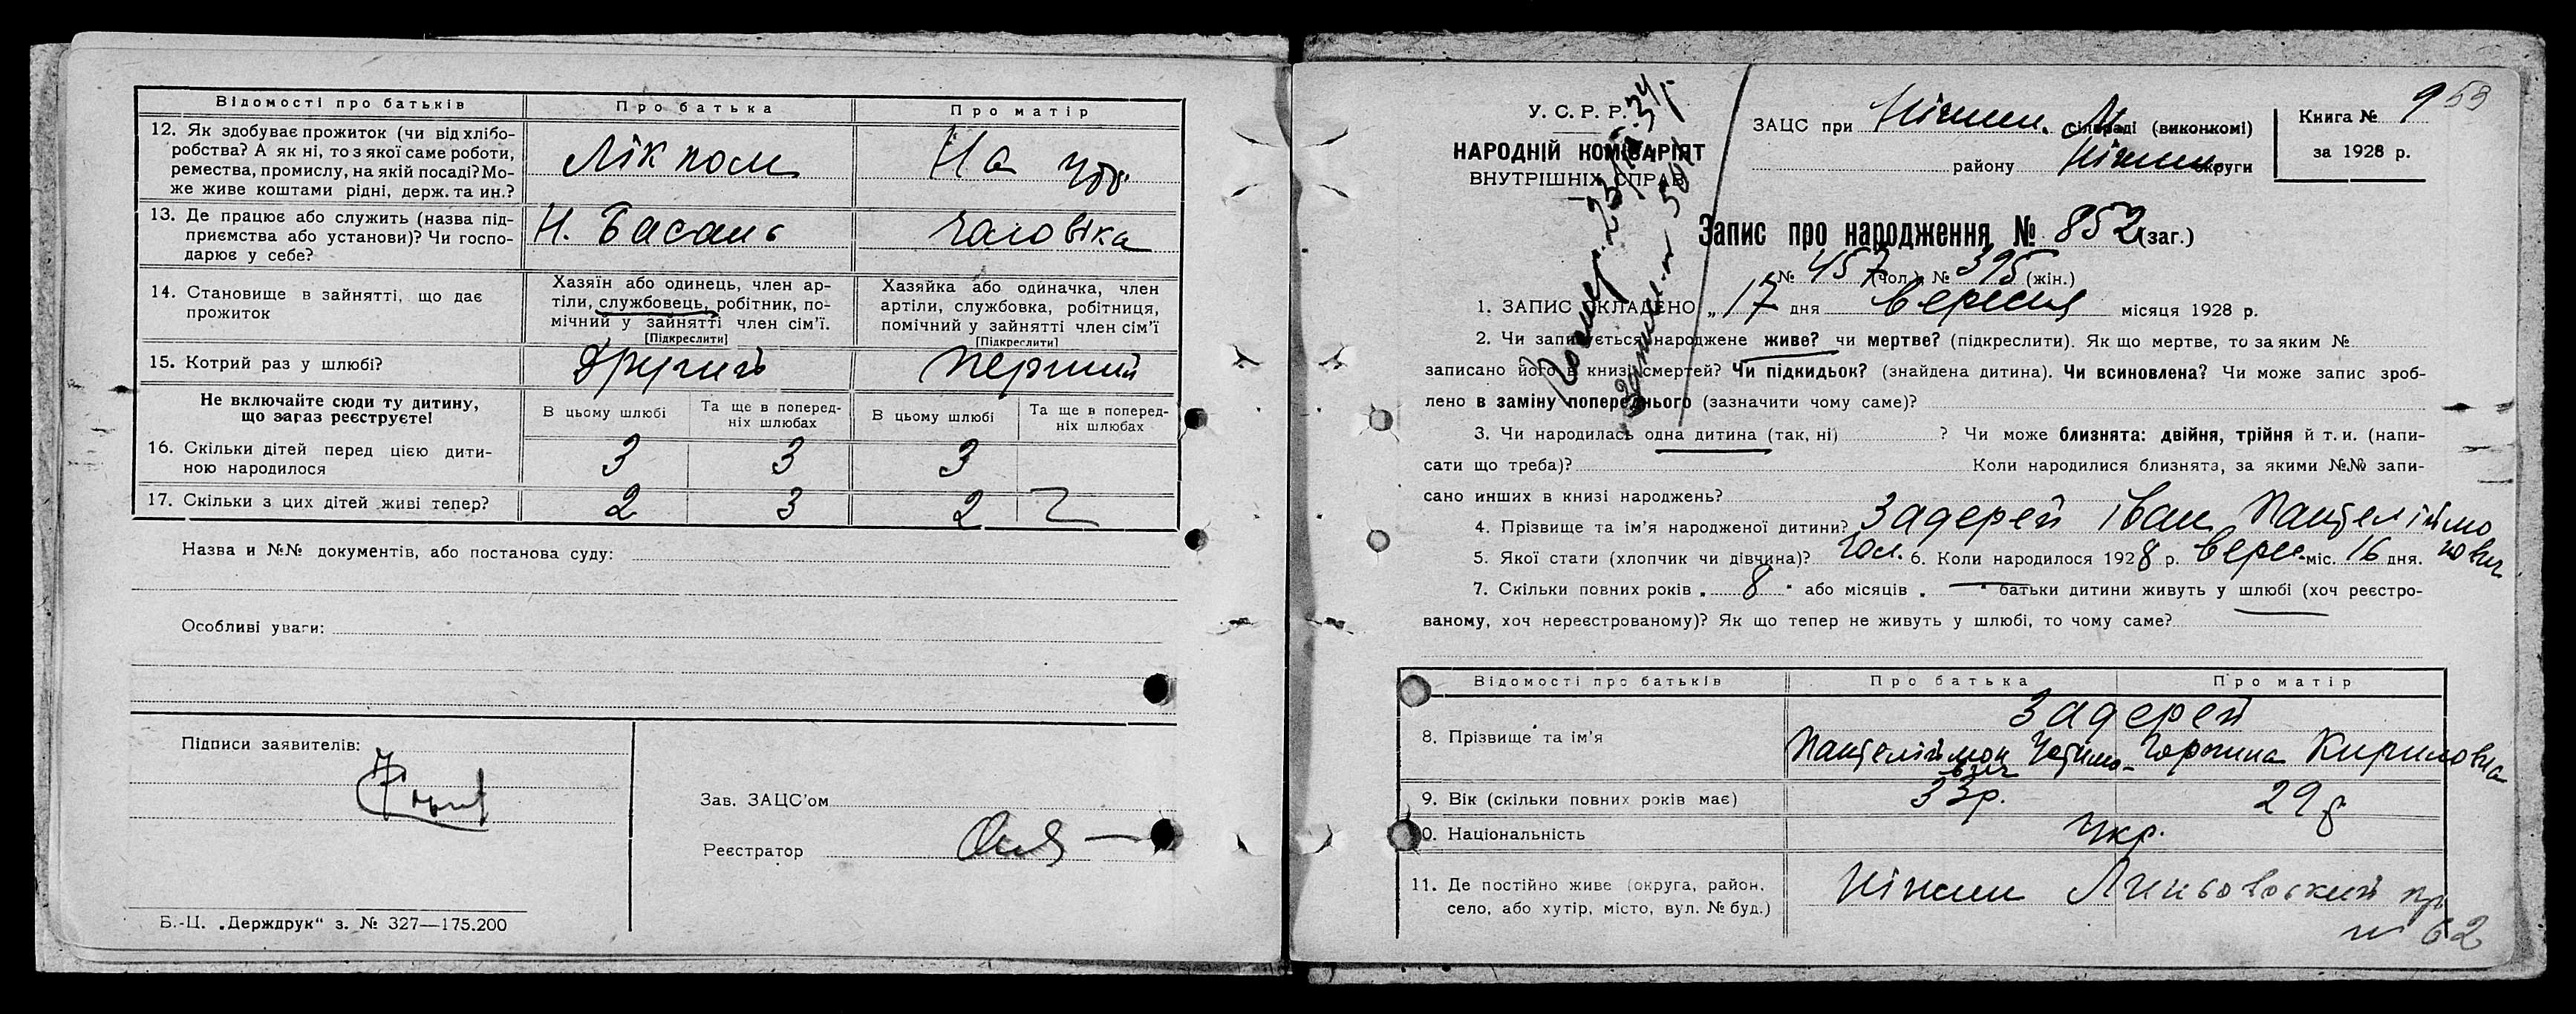 Відомості про батьків Про батька Про матір
12. Як здобуває прожиток (чи від хлібо-
робства? А як ні, то з якої саме роботи,
ремества, промислу, на якій посаді? Мо-
же живе коштами рідні, держ. та ин.?
Лікпом На утр.
13. Де працює або служить (назва під-
приємства або установи)? Чи госпо-
дарює у себе?
Н. Басань чоловіка
14. Становище в зайнятті, що дає
прожиток
Хазяїн або одинець, член ар-
тіли, службовець, робітник, по-
мічний у зайнятті член сім'ї.
[Підкреслити]
Хазяйка або одиначка, член
артіли, службовка, робітниця,
помічний у зайнятті член сім'ї
[Підкреслити]
15. Котрий раз у шлюбі? Другий перший
Не включайте сюди ту дитину,
що загаз реєструєте!
В цьому шлюбі
Та ще в поперед-
ніх шлюбах
В цьому шлюбі
Та ще в поперед-
ніх шлюбах
16. Скільки дітей перед цією дити-
ною народилося
3 3 3
17. Скільки з цих дітей живі тепер? 2 3 2
Назва и №№ документів, або постанова суду:
Особливі уваги:
Підписи заявителів:
Зав. ЗАЦС'ом
Реєстратор
Б.-Ц. „Держдрук“ з. № 327—175.200
У. С. Р. Р.
НАРОДНІЙ КОМІСАРІЯТ
ВНУТРІШНІХ СПРАВ
ЗАЦС при Ніжин. М. сільраді (виконкомі)
району Ніжин округи
Книга № 9
за 1928 р.
53
Запис про народження № 852 (заг.)
№ 457 (чол.) № 395 (жін.)
1. ЗАПИС СКЛАДЕНО „17 дня вересня місяця 1928 р.
2. Чи записується народжене живе? чи мертве? (підкреслити). Як що мертве, то за яким №
записано його в книзі смертей? Чи підкидьок? (знайдена дитина). Чи всиновлена? Чи може запис зроб-
лено в заміну попереднього (зазначити чому саме)?
3. Чи народилась одна дитина (так, ні) ? Чи може близнята: двійня, трійня й т. и. (напи-
сати що треба)? Коли народилися близнята, за якими №№ запи-
сано инших в книзі народжень?
4. Прізвище та ім'я народженої дитини? Задерей Іван Пантелiймо
нович
5. Якої стати (хлопчик чи дівчина)? чол. 6. Коли народилося 1928 р. верес. міс. 16 дня.
7. Скільки повних років „ 8 “ або місяців „ — “ батьки дитини живуть у шлюбі (хоч реєстро-
ваному, хоч нереєстрованому)? Як що тепер не живуть у шлюбі, то чому саме?
Відомості про батьків Про батька Про матір
8. Прізвище та ім'я
Задерей
Пантелiймон Кириловна
9. Вік (скільки повних років має) 33р. 29 р
10. Національність Укр.
11. Де постійно живе (округа, район,
село, або хутір, місто, вул. № буд.)
Ніжин
№ 62